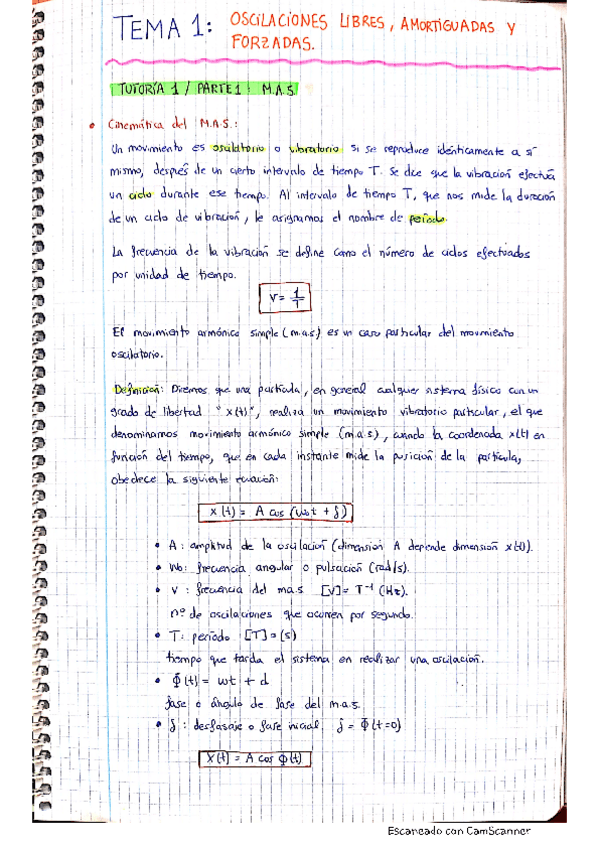 TEMA 1: OSCILACIONES LIBRES, AMORTIGUADAS Y
FORZADAS.
TUTORÍA 1 / PARTE 1: M.A.S.
• Cinemática del M.A.S.:
Un movimiento es oscilatorio o vibratorio si se reproduce idénticamente a sí
mismo, después de un cierto intervalo de tiempo T. Se dice que la vibración efectúa
un ciclo durante ese tiempo. Al intervalo de tiempo T, que nos mide la duración
de un ciclo de vibración, le asignamos el nombre de periodo.
La frecuencia de la vibración se define como el número de ciclos efectuados
por unidad de tiempo.
ν = 1/T
El movimiento armónico simple (m.a.s) es un caso particular del movimiento
oscilatorio.
Definición: Diremos que una partícula, en general cualquier sistema físico con un
grado de libertad "x(t)", realiza un movimiento vibratorio particular, el que
denominamos movimiento armónico simple (m.a.s), cuando la coordenada x(t) en
función del tiempo, que en cada instante mide la posición de la partícula,
obedece la siguiente ecuación:
x(t) = A cos (ω₀t + δ)
• A: amplitud de la oscilación (dimensión A depende dimensión x(t)).
• ω₀: frecuencia angular o pulsación (rad/s).
• ν: frecuencia del m.a.s [ν] = T⁻¹ (Hz).
nº de oscilaciones que ocurren por segundo.
• T: periodo [T] = (s)
tiempo que tarda el sistema en realizar una oscilación.
• ϕ(t) = ωt + d
fase o ángulo de fase del m.a.s.
• δ: desfasaje o fase inicial. δ = ϕ(t=0)
X(t) = A cos ϕ(t)
Escaneado con CamScanner